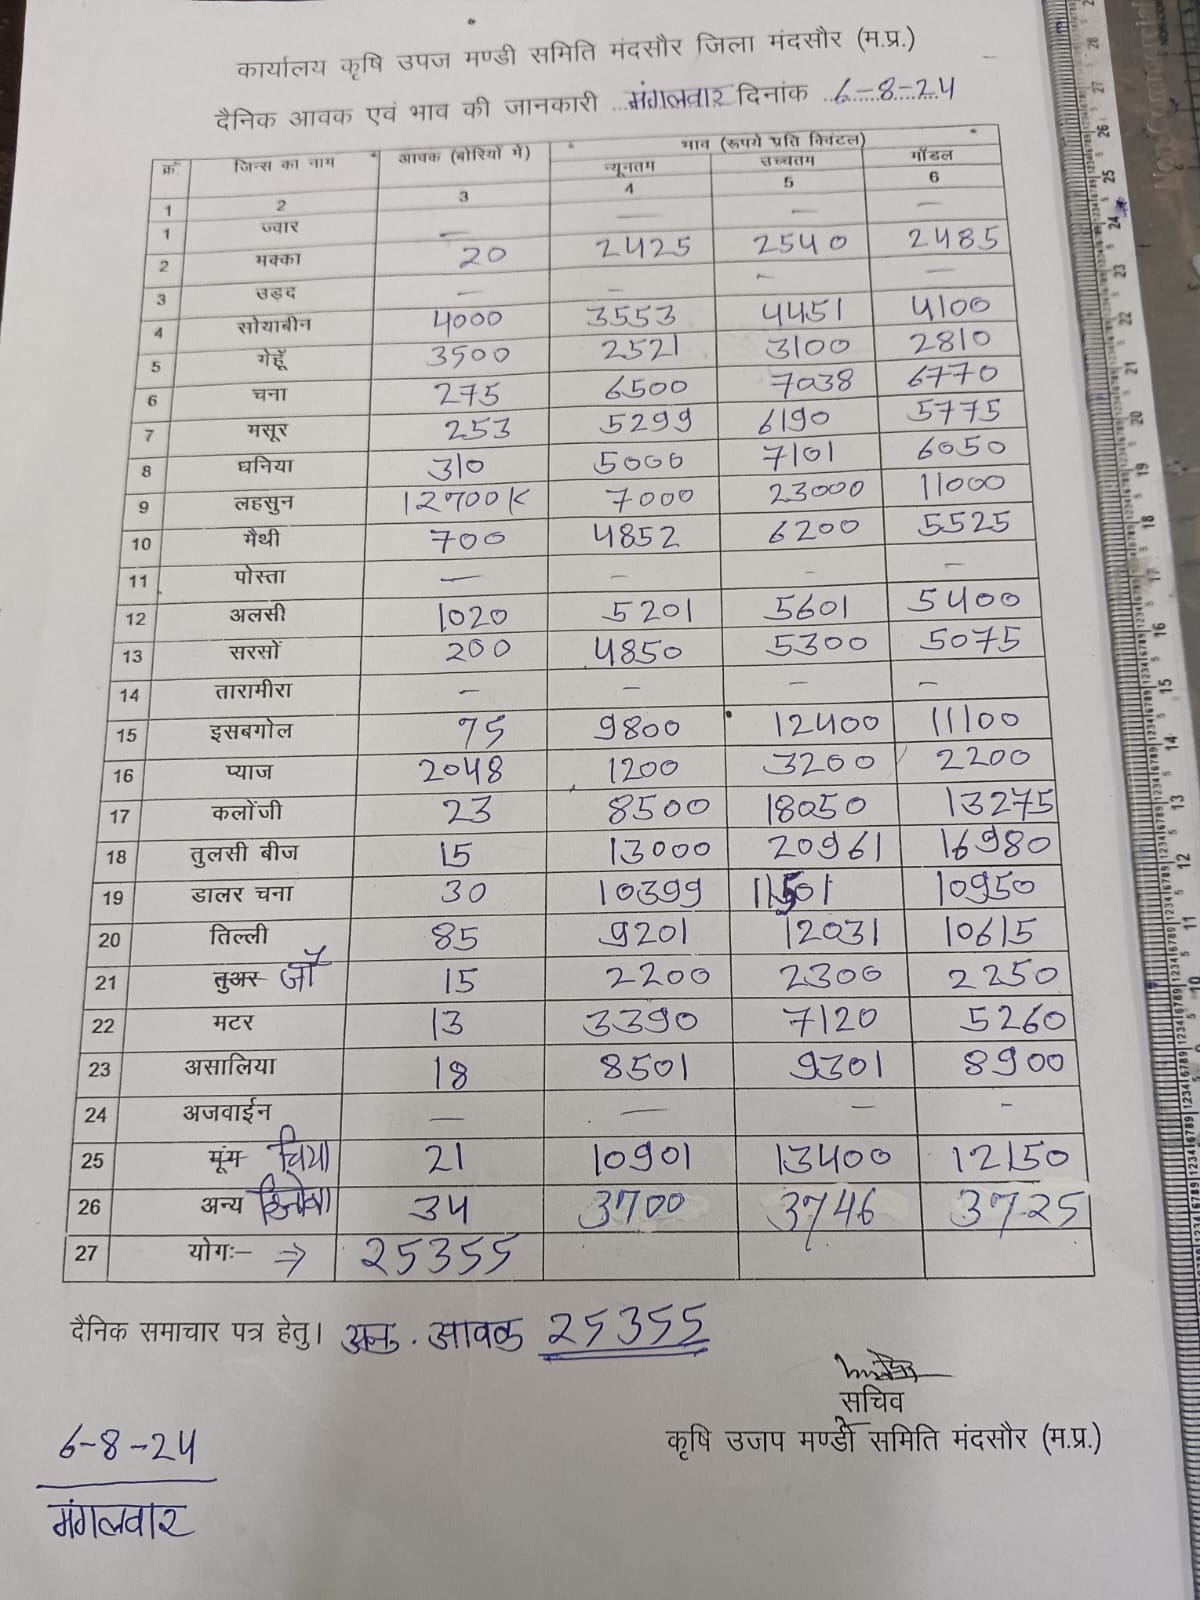 कार्यालय कृषि उपज मण्डी समिति मंदसौर जिला मंदसौर (म.प्र.)
दैनिक आवक एवं भाव की जानकारी ...मंगलवार दिनांक ..6-8-24
क्र. जिन्स का नाम आवक (बोरियों में) भाव (रूपये प्रति क्विंटल)
न्यूनतम उच्चतम मॉडल
1 2 3 4 5 6
1 ज्वार — — — —
2 मक्का 20 2425 2540 2485
3 उड़द — — — —
4 सोयाबीन 4000 3553 4451 4100
5 गेहूँ 3500 2521 3100 2810
6 चना 275 6500 7038 6770
7 मसूर 253 5299 6190 5775
8 धनिया 310 5000 7101 6050
9 लहसुन 12700K 7000 23000 11000
10 मैथी 700 4852 6200 5525
11 पोस्ता — — — —
12 अलसी 1020 5201 5601 5400
13 सरसों 200 4850 5300 5075
14 तारामीरा — — — —
15 इसबगोल 75 9800 12400 11100
16 प्याज 2048 1200 3200 2200
17 कलोंजी 23 8500 18050 13275
18 तुलसी बीज 15 13000 20961 16980
19 डालर चना 30 10399 11501 10950
20 तिल्ली 85 9201 12031 10615
21 तुअर जौ 15 2200 2300 2250
22 मटर 13 3390 7120 5260
23 असालिया 18 8501 9301 8900
24 अजवाईन — — — -
25 मूंग चिया 21 10901 13400 12150
26 अन्य 34 3700 3746 3725
27 योगः— ⇒ 25355
दैनिक समाचार पत्र हेतु। अनु. आवक 25355
सचिव
कृषि उजप मण्डी समिति मंदसौर (म.प्र.)
6-8-24
मंगलवार